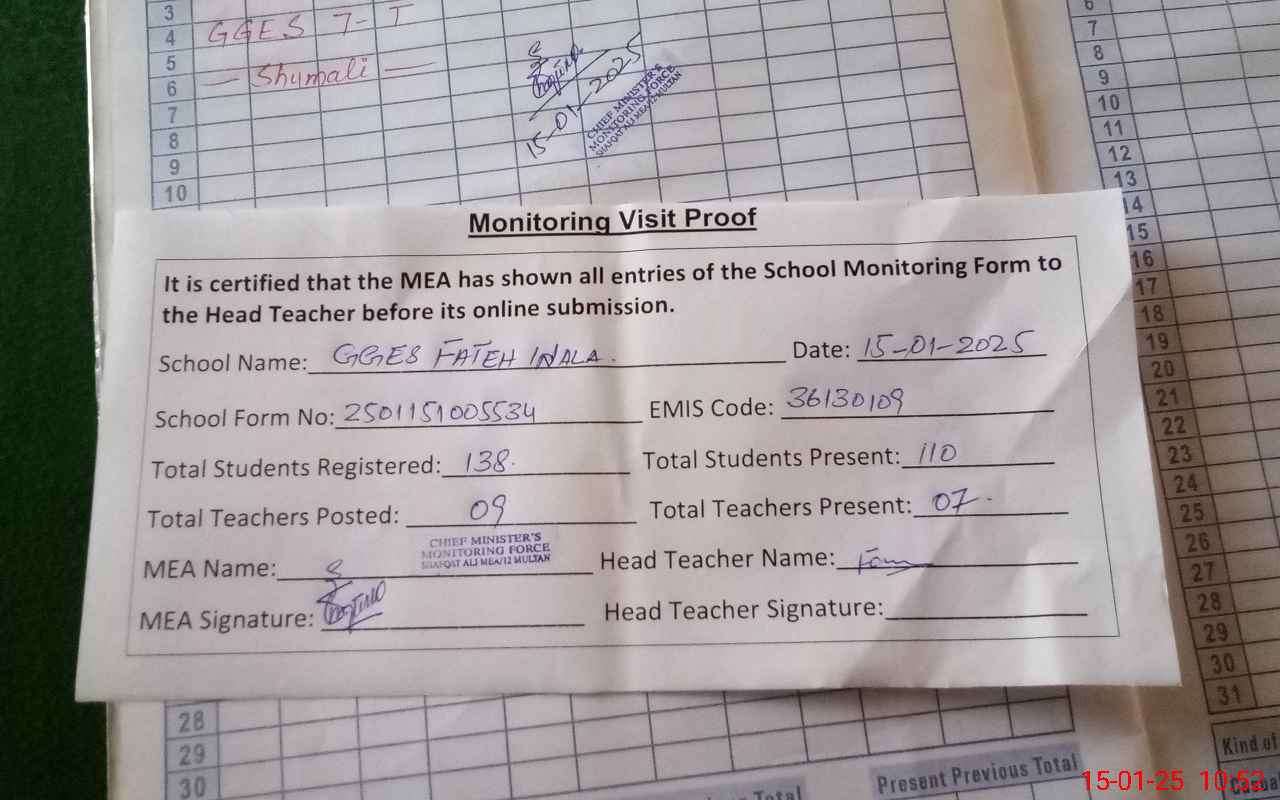 3
4
5
6
7
8
9
10
GGES 7-T
— Shumali —
15-01-2025
CHIEF MINISTER'S
MONITORING FORCE
SHAFQAT ALI MEA/12 MULTAN
Monitoring Visit Proof
It is certified that the MEA has shown all entries of the School Monitoring Form to
the Head Teacher before its online submission.
School Name: GGES FATEH WALA. Date: 15-01-2025
School Form No: 2501151005534 EMIS Code: 36130109
Total Students Registered: 138. Total Students Present: 110
Total Teachers Posted: 09 Total Teachers Present: 07.
CHIEF MINISTER'S
MONITORING FORCE
SHAFQAT ALI MEA/12 MULTAN
MEA Name: Head Teacher Name:
MEA Signature: Head Teacher Signature:
28
29
30
Total
Present Previous Total
6
7
8
9
10
11
12
13
14
15
16
17
18
19
20
21
22
23
24
25
26
27
28
29
30
31
Kind of
Casual
15-01-25 10:52